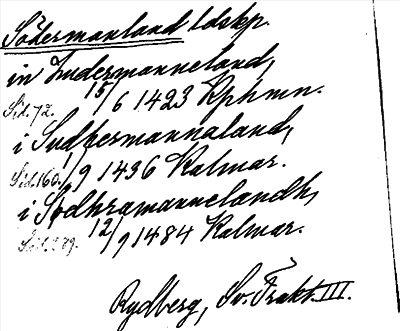 Södermanland ldskp.
in Sudermanneland,
Sid. 72. 15/6 1423 Kphmn.
i Sudhermannaland,
Sid. 160. 1/9 1436 Kalmar.
i Sødhramannelandh,
Sid. 12/9 1484 Kalmar.
Rydberg, Sv. Trakt. III.